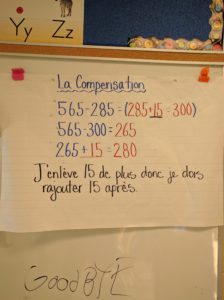 Yy Zz
La Compensation
565-285=(285+15=300)
565-300=265
265+15=280
J'enlève 15 de plus donc je dois
rajouter 15 après.
GooDBYE